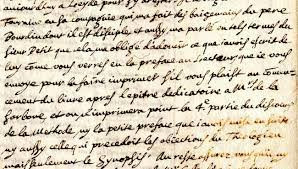 Tournine en sa compagnie qui ma fait des baisemains du pere
Bourdin dont il est disciple, et aussy ma parlé en tels termes du
sieur Petit que cela ma obligé d'adoucir ce que j'avois escrit de
luy come vous verrez en la preface au lecteur que ie vous
envoye pour la faire imprimer s'il vous plaist au comen-
cement du livre apres l'epitre dedicatoire a Mrs de la
Sorbone et on n'imprimera point la 4e partie du discours
de la Methode ny la petite preface que i'avois mise en suite
ny aussy celle qui precedoit les obiections du Theologien
mais seulement le Synopsis. Au reste